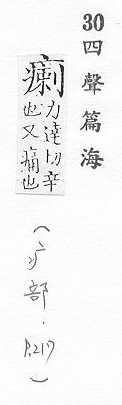 30四聲篇海
瘌
力達切辛
也又痛也
(疒部.P.217)